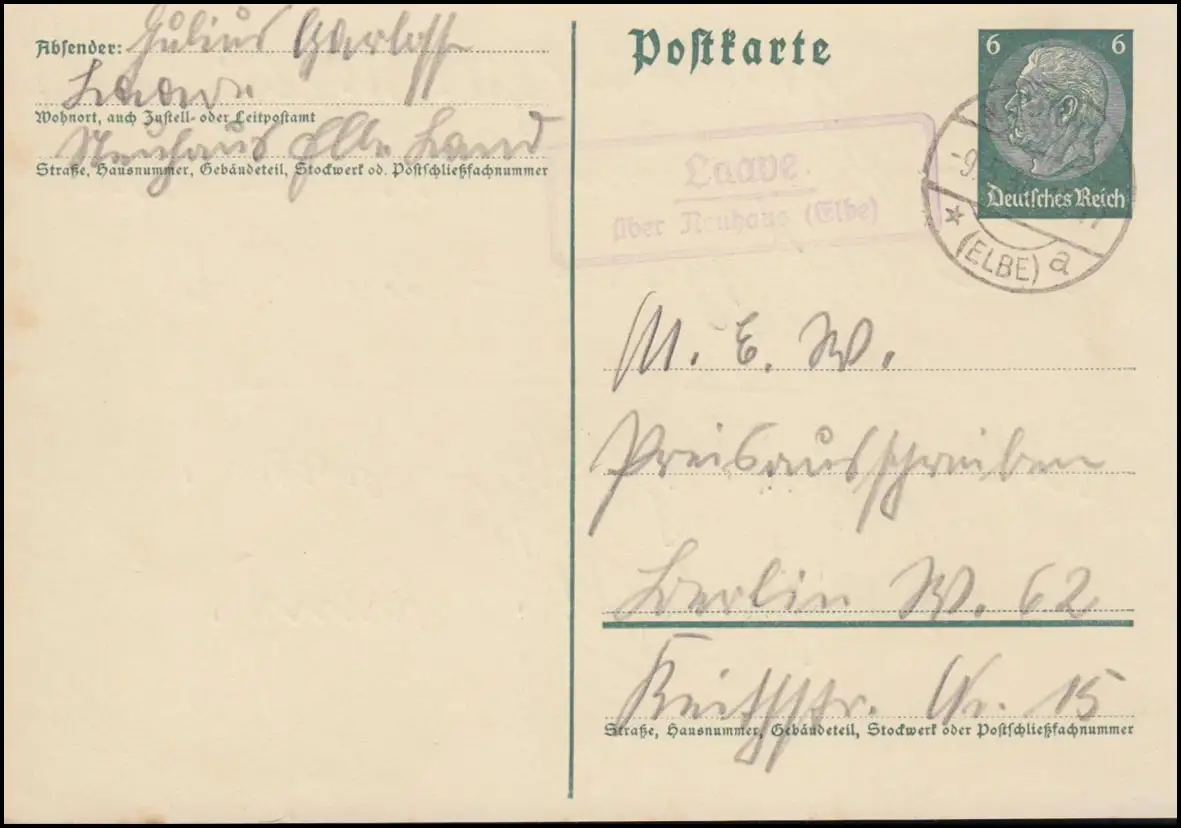 Absender: Julius
Laave
Wohnort, auch Zustell- oder Leitpostamt
Neuhaus Elbe Land
Straße, Hausnummer, Gebäudeteil, Stockwerk od. Postschließfachnummer
Postkarte
6 6
Deutsches Reich
Laave
über Neuhaus (Elbe)
(ELBE) a
M. E. W.
Preisausschreiben
Berlin W. 62
Keithstr. Nr. 15
Straße, Hausnummer, Gebäudeteil, Stockwerk oder Postschließfachnummer